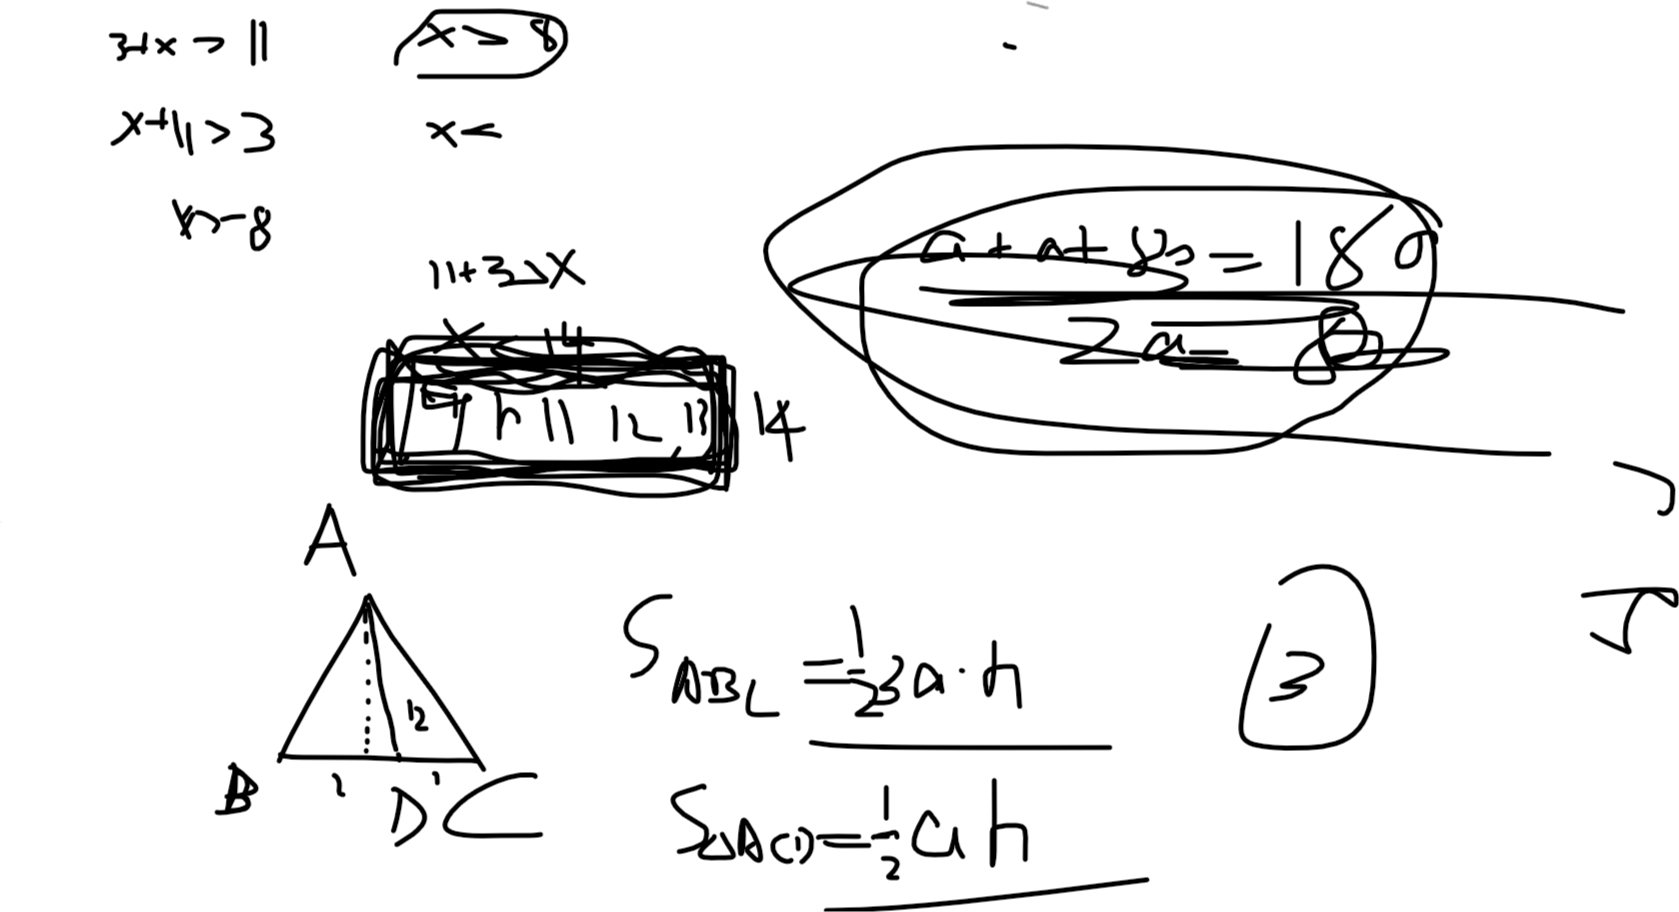 3+x > 11
x > 8
x+11 > 3
x <
x > -8
11+3 > x
x < 14
9 10 11 12 13
14
a + a + 80 = 180
2a =
A
B
D
C
12
2
1
S ABC = 1/2 3a · h
3
S△ACD = 1/2 a h